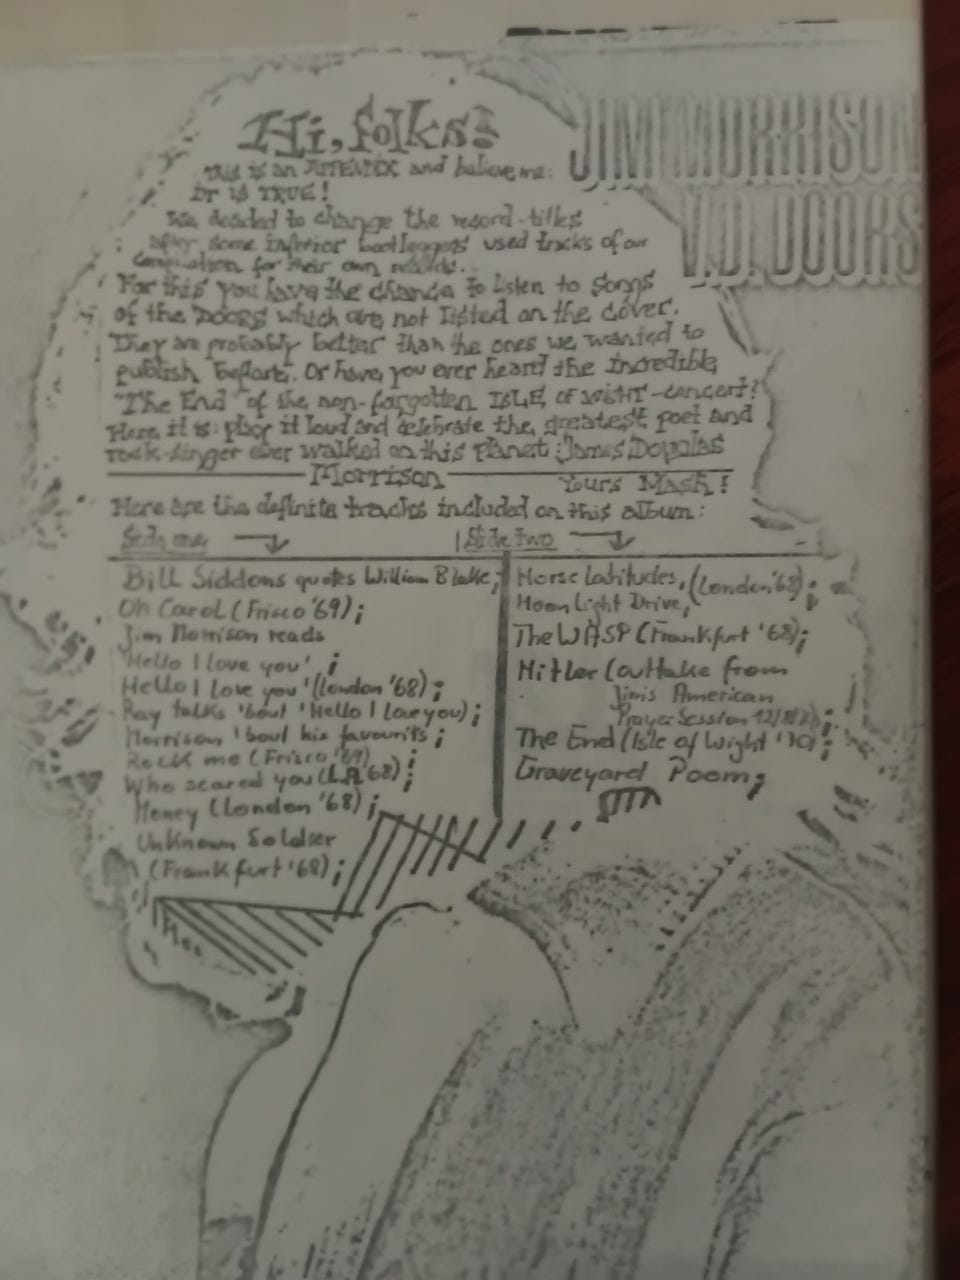 Hi, folks!
JIM MORRISON
V.D. DOORS
This is an APPENDIX and believe me:
IT IS TRUE!
We decided to change the record-titles
after some inferior bootleggers used tracks of our
compilation for their own records.
For this you have the chance to listen to songs
of the DOORS which are not listed on the cover.
They are probably better than the ones we wanted to
publish before. Or have you ever heard the incredible
"The End" of the non-forgotten ISLE OF WIGHT-concert?
Here it is: play it loud and celebrate the greatest poet and
rock-singer ever walked on this planet: James Douglas
Morrison
Yours Mash!
Here are the definite tracks included on this album:
Side one
Bill Siddons quotes William Blake;
Oh Carol (Frisco '69);
Jim Morrison reads
'Hello I love you';
Hello I Love you' (London '68);
Ray talks 'bout 'Hello I love you);
Morrison 'bout his favourits;
Rock me (Frisco '69)
Who scared you (LA '68);
Money (London '68);
Unknown Soldier
(Frankfurt '68);
Side two
Horse Latitudes, (London '68);
Moon Light Drive,
The WASP (Frankfurt '68);
Hitler (outtake from
Jim's American
Prayer Session 12/8/);
The End (Isle of Wight '70);
Graveyard Poem;